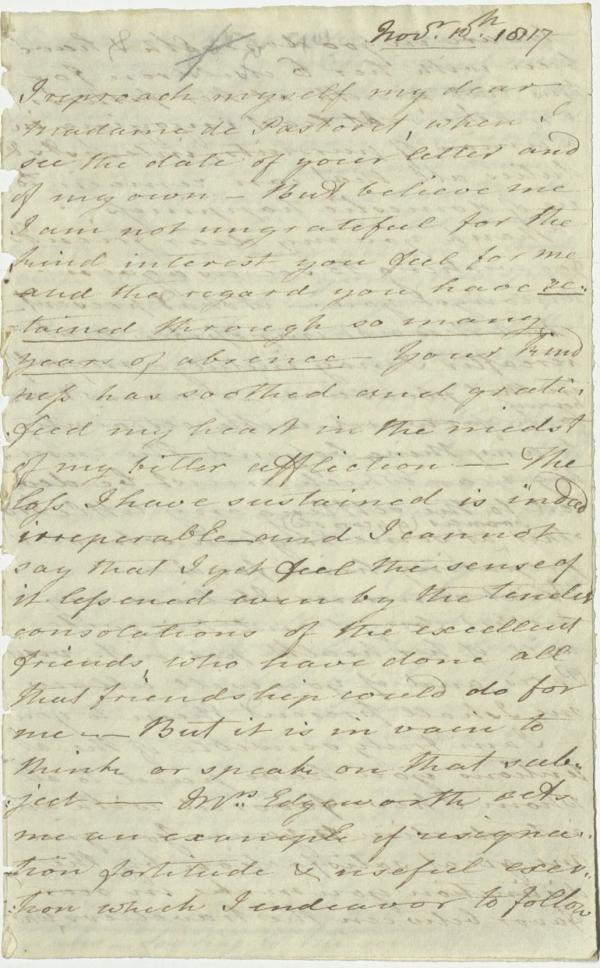 Novr. 12th. 1817
I reproach myself my dear
Madame de Pastoret, when I
see the date of your letter and
of my own – But believe me
I am not ungrateful for the
kind interest you feel for me
and the regard you have re-
tained through so many
years of absence – Your kind
ness has soothed and grati-
fied my heart in the midst
of my bitter affliction — The
loss I have sustained is indeed
irreperable – and I cannot
say that I yet feel the sense of
it lessened even by the tender
consolations of the excellent
friends, who have done all
that friendship could do for
me — But it is in vain to
think or speak on that sub-
ject — Mrs. Edgeworth sets
me an example of resigna-
tion fortitude & useful exer-
tion which I endeavor to follow